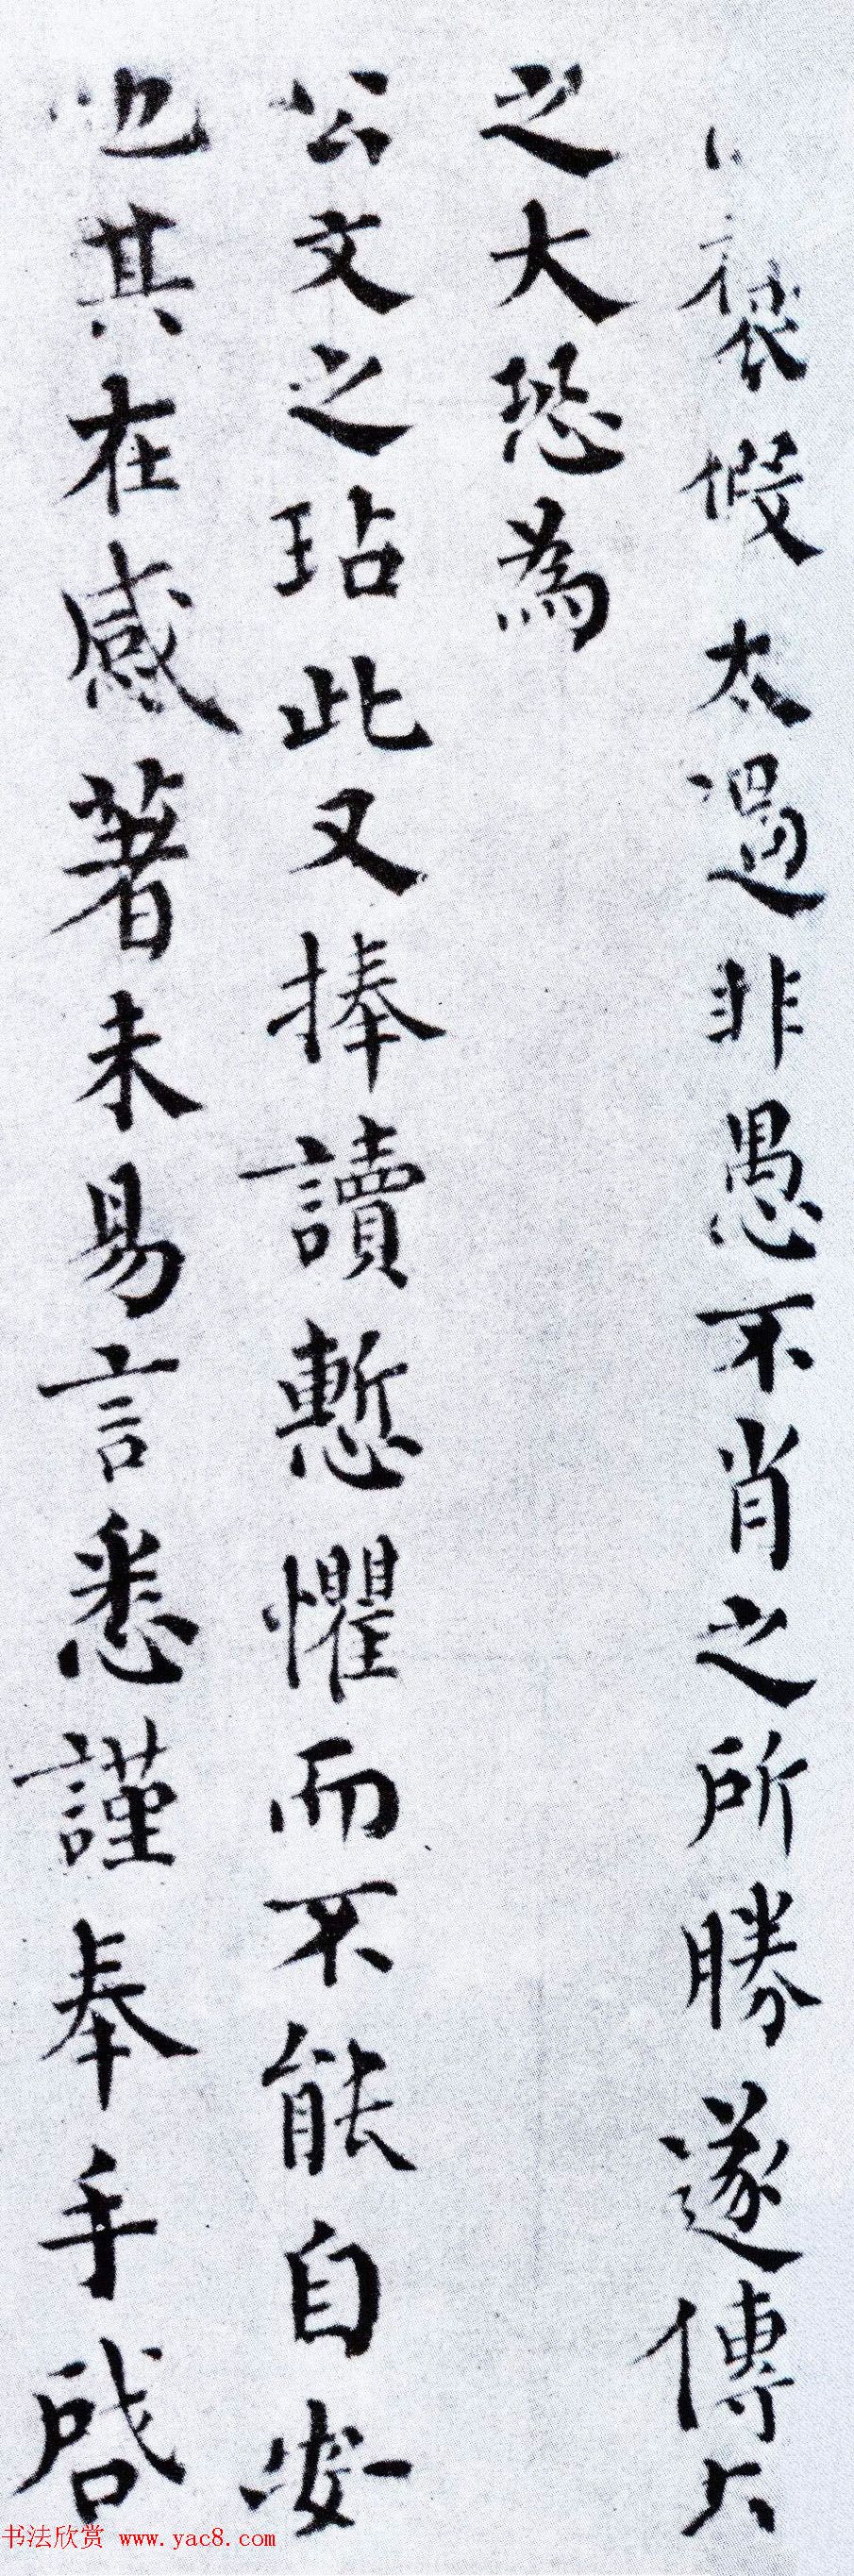 假太過非愚不肖之所勝遂傳
之大恐為
公文之玷此又捧讀慙懼而不能自安
也其在感著未易言悉謹奉手啓
书法欣赏 www.yac8.com